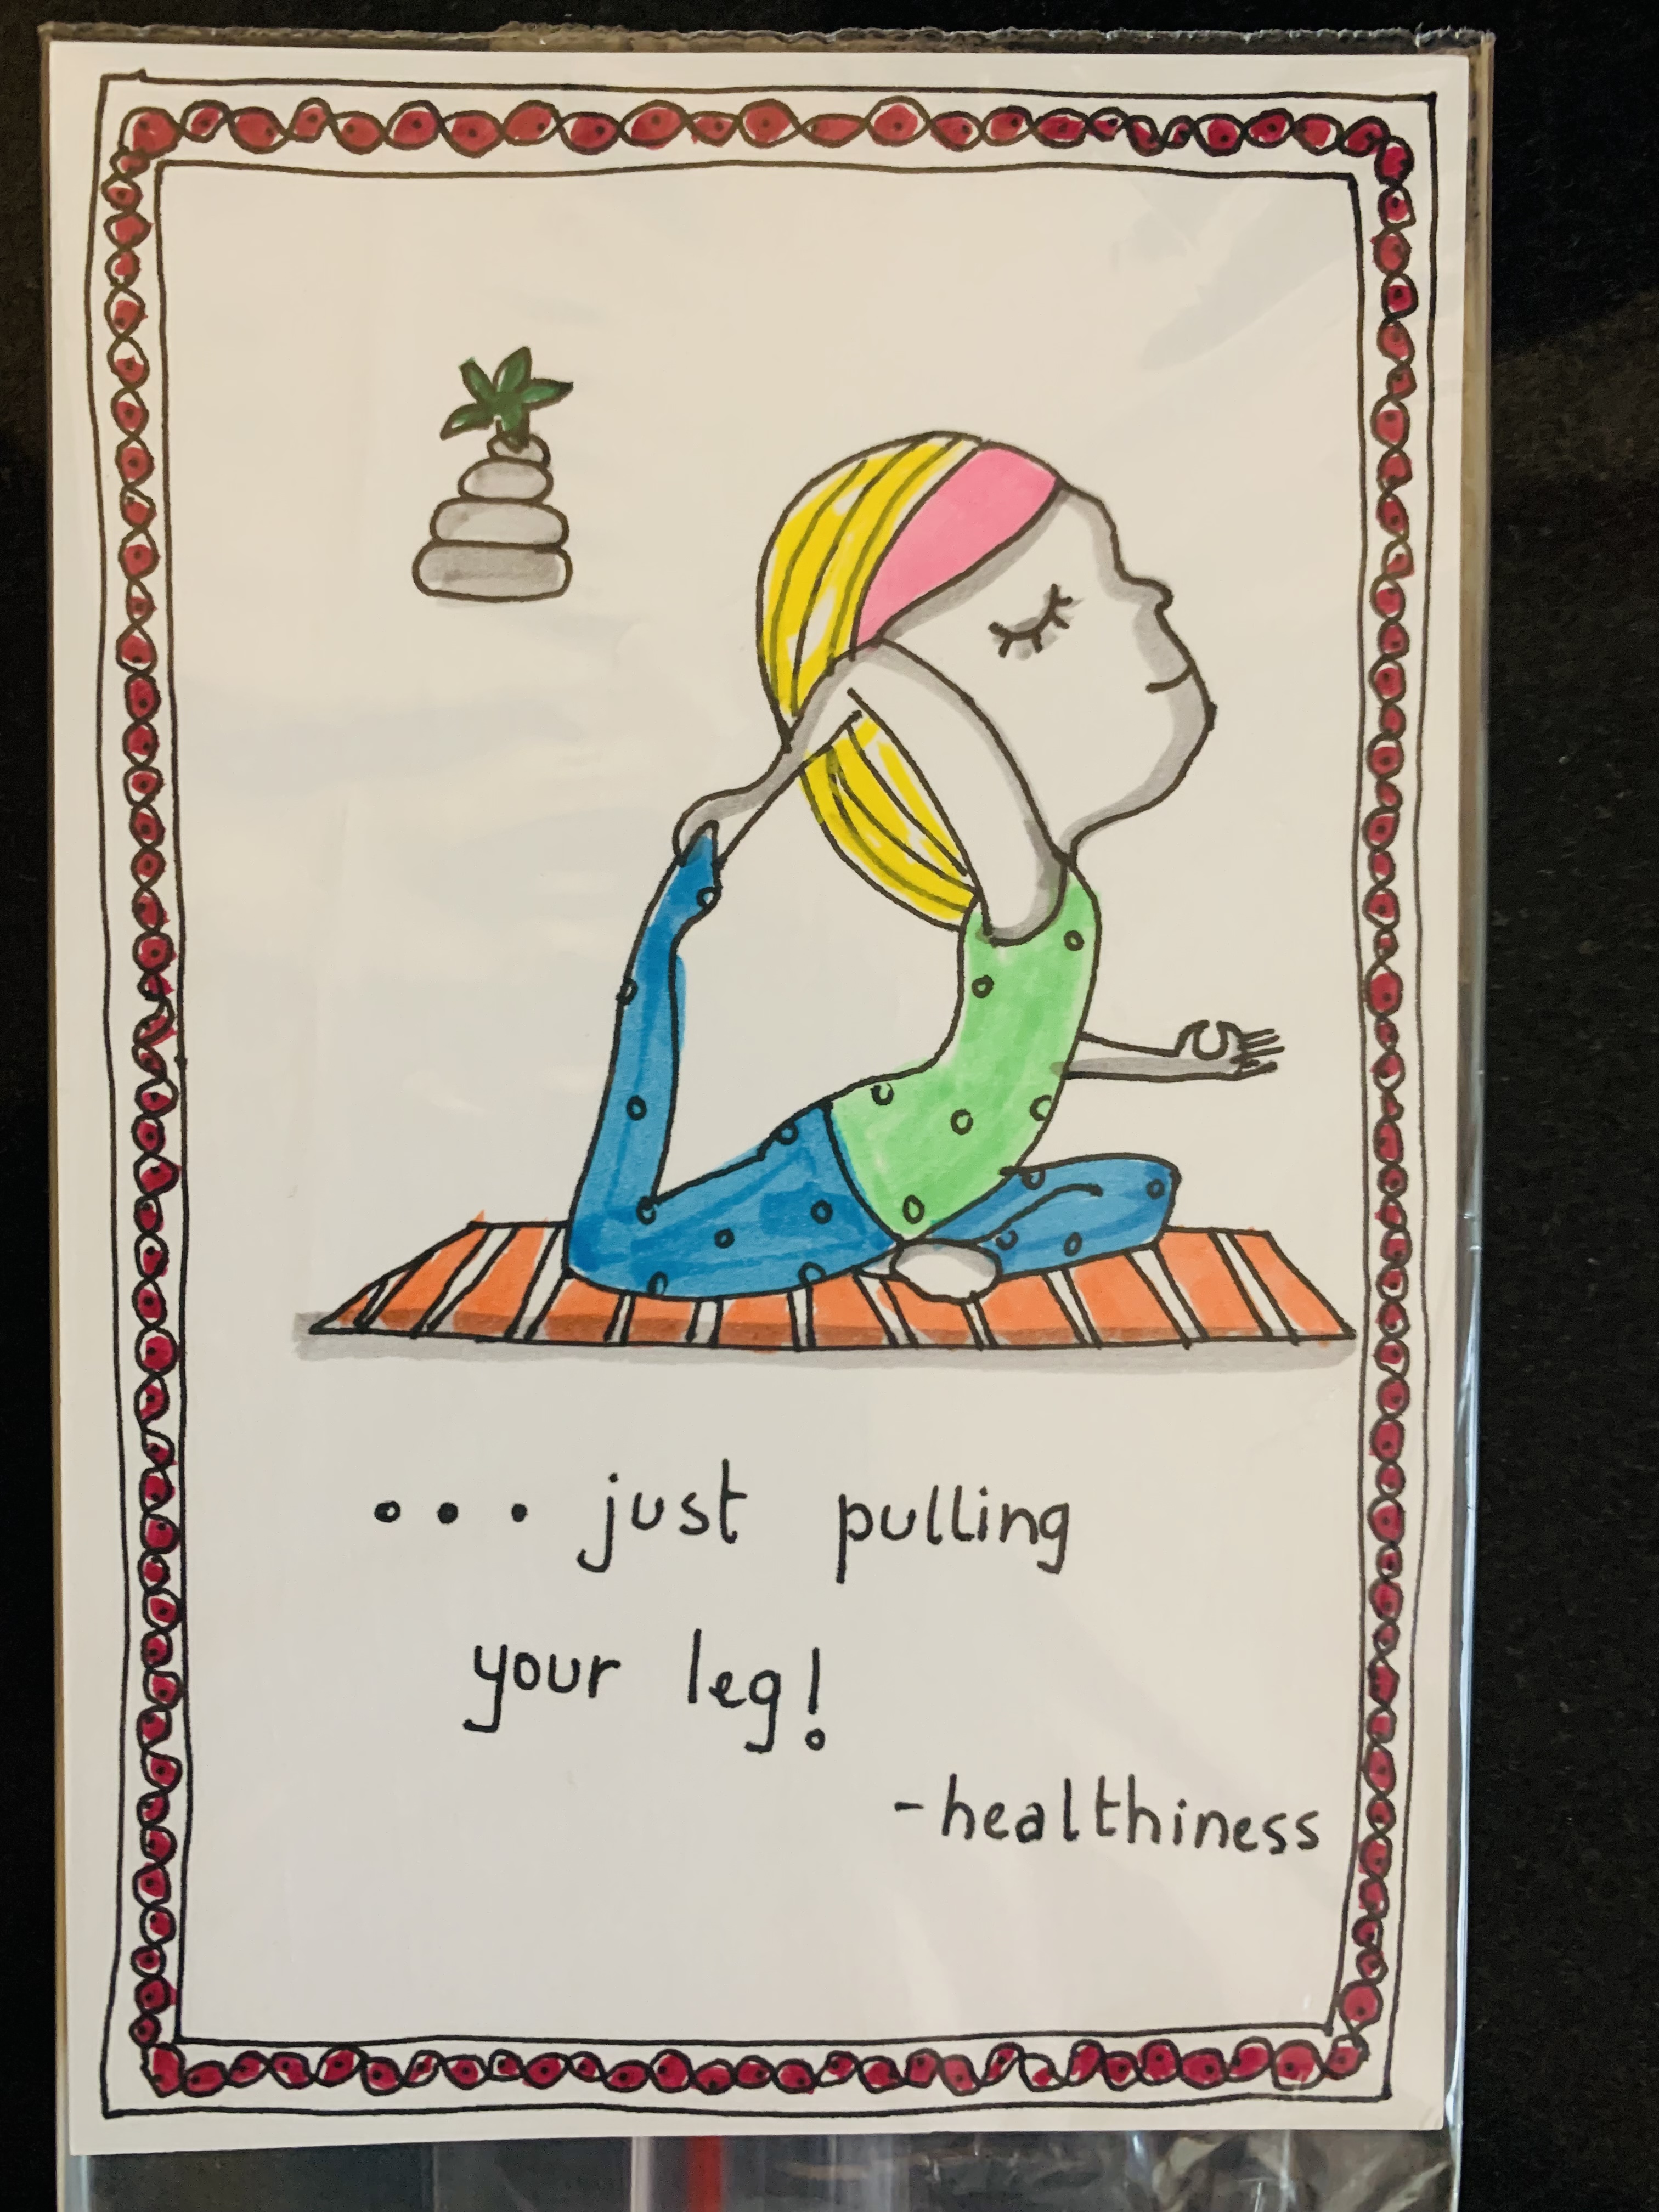 ... just pulling
your leg!
-healthiness